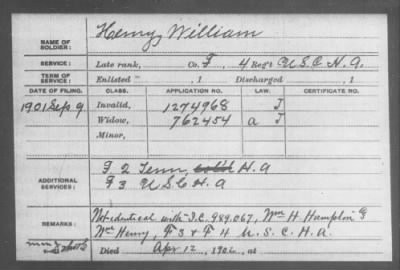 NAME OF SOLDIER: Henry, William
SERVICE: Late rank, Co. F, 4 Reg't U.S.C.H.A.
TERM OF SERVICE: Enlisted , 1 Discharged , 1
DATE OF FILING. CLASS. APPLICATION NO. LAW. CERTIFICATE NO.
1901 Sep 9 Invalid, 1274968 J
Widow, 762454 a J
Minor,
ADDITIONAL SERVICES: F 2 Tenn, H.A
F 3 U S C H.A
REMARKS: Not identical with I.C. 989.067, Wm H. Hampton F
Wm Henry, F 3 & F 4 U.S.C.H.A.
Died Apr 12, 1906, at